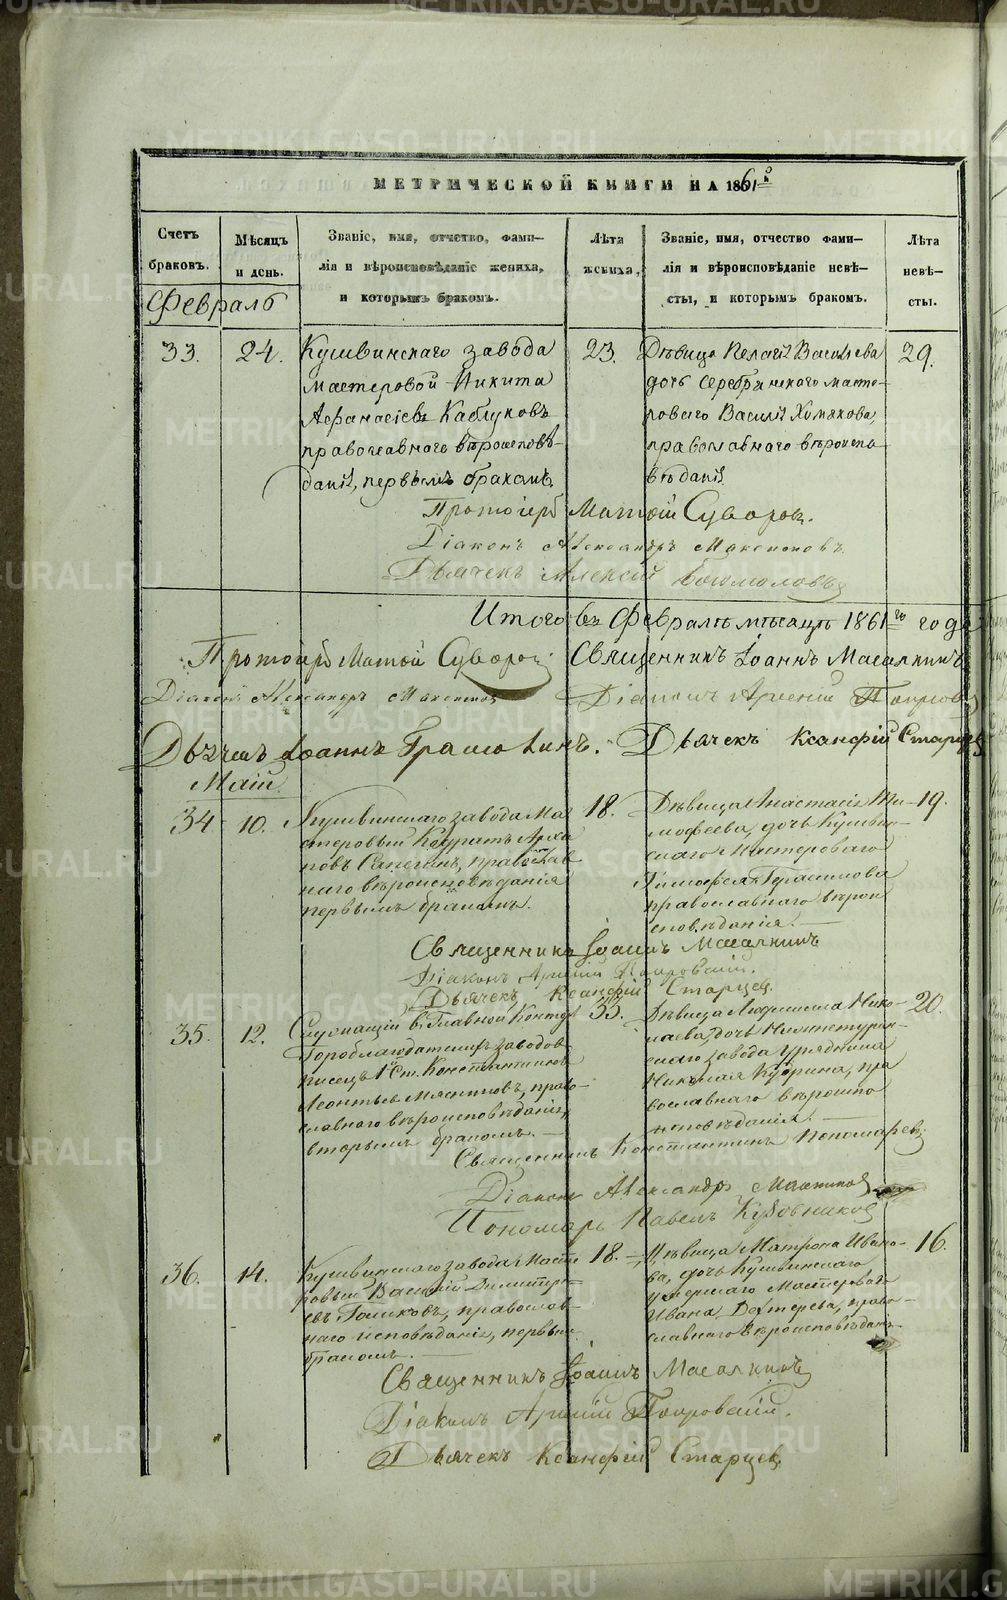 МЕТРИЧЕСКОЙ КНИГИ НА 1861й
Счетъ браковъ.
Мѣсяцъ и день.
Званіе, имя, отчество, фами-
лія и вѣроисповѣданіе жениха,
и которымъ бракомъ.
Лѣта жениха,
Званіе, имя, отчество фами-
лія и вѣроисповѣданіе невѣ-
сты, и которымъ бракомъ.
Лѣта невѣ-
сты.
Февраль
33. 24.
Кушвинскаго завода
мастеровой Никита
Афанасіевъ Каблуковъ
православнаго вѣроисповѣ-
данія, первымъ бракомъ.
23.
Дѣвица Пелагія Васильева
дочь Серебрянскаго масте-
роваго Василія Хомякова,
православнаго вѣроиспо
вѣданія
29.
Протоіерей Матѳій Суворовъ.
Діаконъ Александръ
Дьячекъ Алексій Богомоловъ
Итого въ Февралѣ мѣсяцѣ 1861го года
Протоіерей Матѳій Суворовъ
Священникъ Іоаннъ Масалкинъ
Діаконъ Александръ
Діаконъ Арсеній Покровскій
Дьячекъ Іоаннъ
Дьячекъ Ксанфій Старцевъ
Май
34 10.
Кушвинскаго завода Ма
стеровый Кодратъ Архи
повъ Сапегинъ, православ
наго вѣроисповѣданія
первымъ бракомъ.
18.
Дѣвица Анастасія Ти-
мофеева, дочь Кушвин-
скаго Мастероваго
Тимофея Герасимова
православнаго вѣрои
сповѣданія.
19.
Священникъ Іоаннъ Масалкинъ
Діаконъ Арсеній Покровскій.
Дьячекъ Ксанфій Старцевъ.
35. 12.
Служащій въ Главной Конторѣ
Гороблагодатскихъ заводовъ
писецъ 1й Ст. Константинъ
Леонтьевъ Мясниковъ, право-
славнаго вѣроисповѣданія,
вторымъ бракомъ.
33.
Дѣвица Людмилла Нико-
лаева, дочь Нижнетурин-
скаго завода урядника
Николая Кубрина, пра
вославнаго вѣроис
повѣданія.
20.
Священникъ Константинъ Пономаревъ
Діаконъ Александръ
Пономарь Павелъ
36. 14.
Кушвинскаго завода Масте
ровый Василій Димитрі-
евъ Голиковъ, православ-
наго исповѣданія, первымъ
бракомъ.
18.
Дѣвица Матрона Ивано-
ва, дочь Кушвинскаго
умершаго Мастероваго
Ивана Дехтерева, право-
славнаго вѣроисповѣданія.
16.
Священникъ Іоаннъ Масалкинъ
Діаконъ Арсеній Покровскій.
Дьячекъ Ксанфій Старцевъ.
METRIKI.GASO-URAL.RU